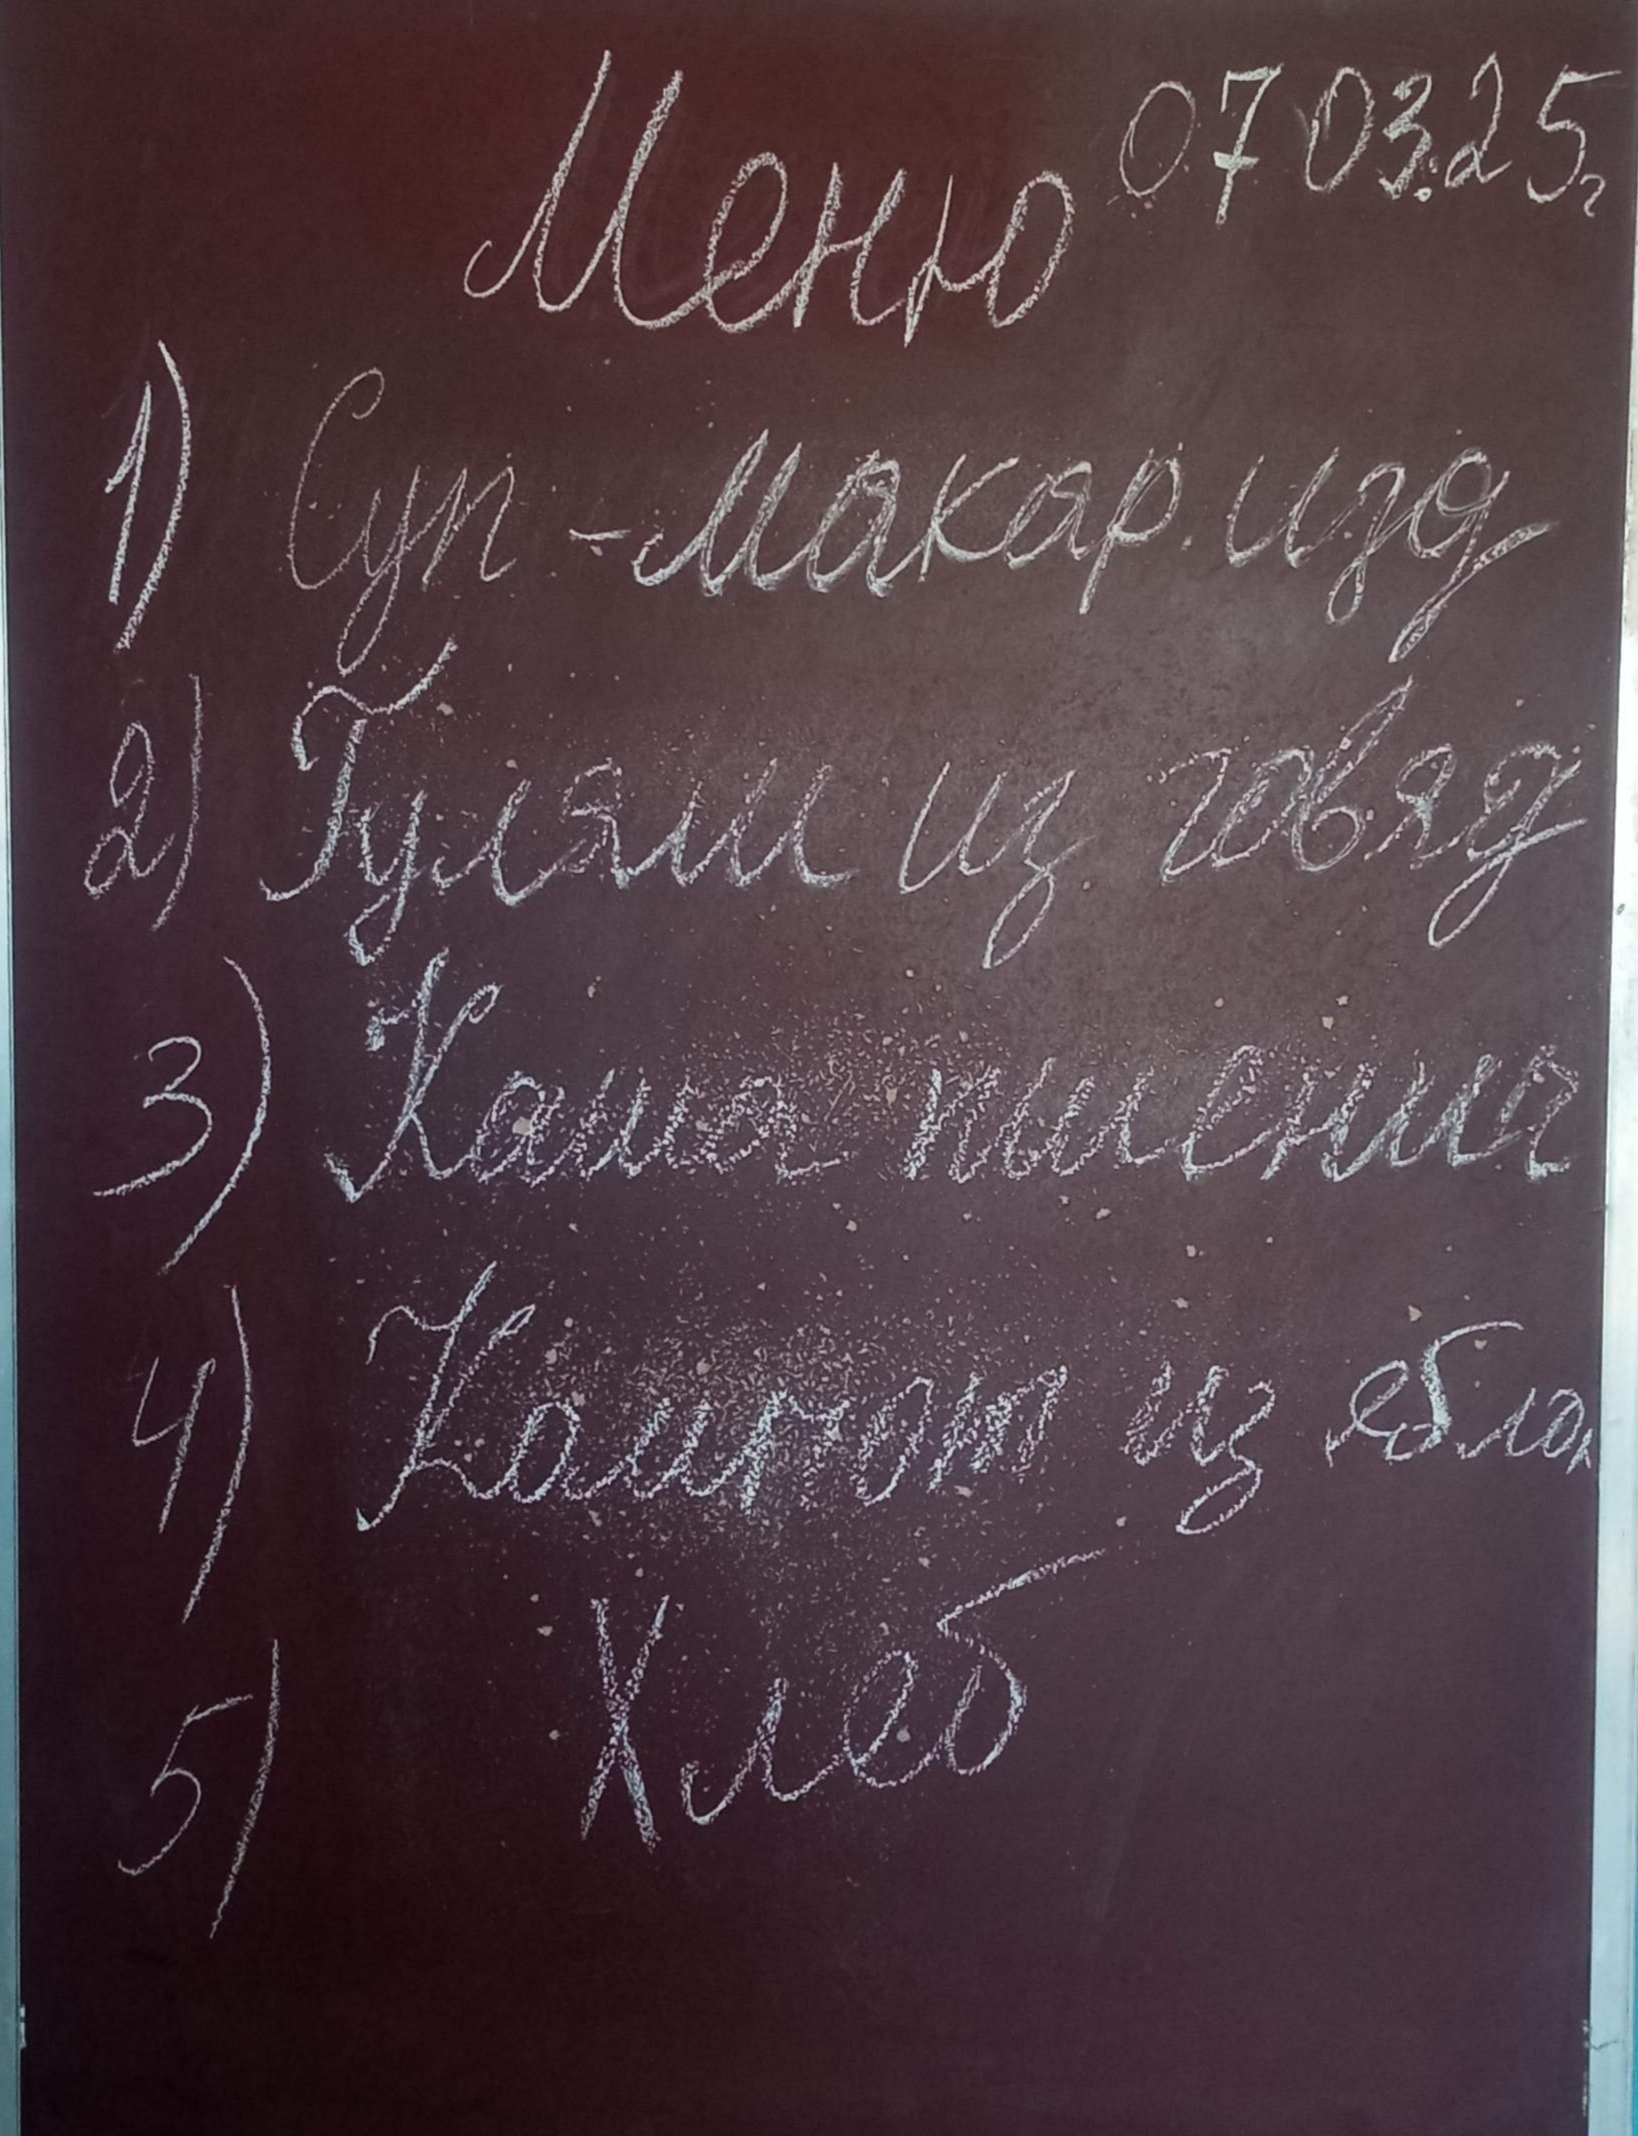 Меню 07.03.25г
1) Суп - макар. изд
2) Гуляш из говяд
3) Каша пшенич
4) Компот из яблок
5) Хлеб